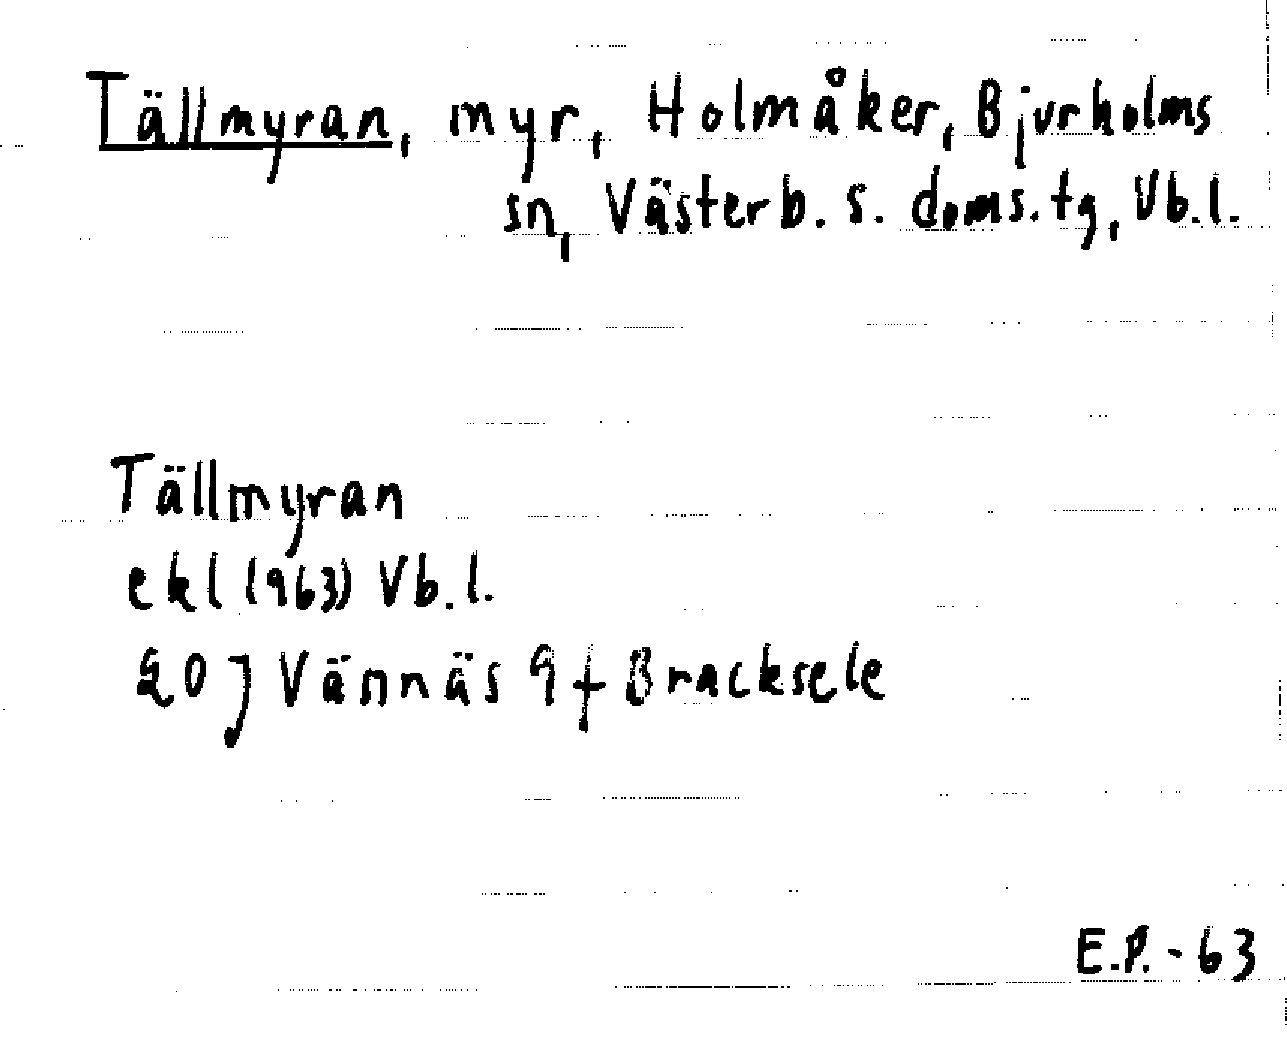 Tällmyran, myr, Holmåker, Bjurholms
sn, Västerb. s. doms.tg, Vb.l.
Tällmyran
ekl (1963) Vb.l.
20 J Vännäs 9 f Bracksele
E.P. - 63